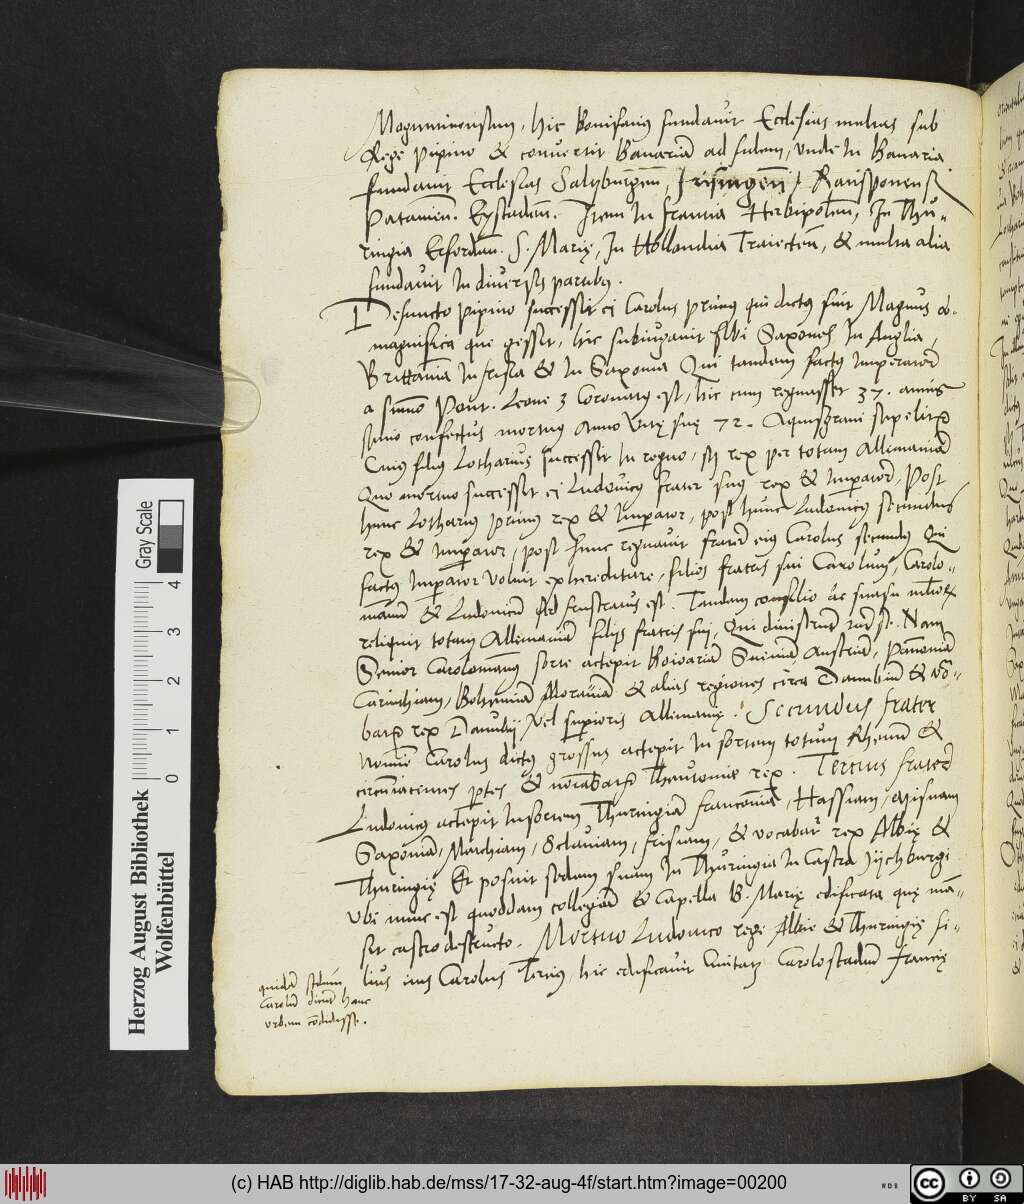 Maguntinensium, hic Bonifacius fundavit Ecclesias multas sub
Rege Pipino & convertit Bavariā ad fidem, unde In Bavaria
fundavit Ecclesias Saltzburgen, frisingen, Ratisponens
Patavien. Eystaden. Item In francia Herbipolen, In Thü-
ringia Erforden. S. Marię, In Hollandia Traiecten, & multa alia
fundavit In diversis partibus.
Defuncto Pipino successit ei Carolus primus qui dictus fuit Magnus ob
magnifica que gessit, hic subiugavit sibi Saxones In Anglia,
Brittania In frisia & In Saxonia Qui tandem factus Imperator
a sūmo Pont. Leone 3 Coronatus est, hic cum regnasset 37. annis
senio confectus mortuus Anno Vitę suę 72. Aquisgrani sepelitur
Cuius filius Lotharius successit In regno, sz rex per totam Allemaniā
Quo mortuo successit ei Ludovicus frater suus rex & Imperator, Post
hunc Lotharius primus rex & Imperator, post hunc Ludovicus secundus
rex & Imperator, post hunc regnavit frater eius Carolus secundus Qui
factus Imperator voluit exhereditare, filios fratris sui Carolum, Carolo-
mannū & Ludovicū sed frustratus est. Tandem consilio ac suasu
reliquit totam Allemaniā filijs fratris sui, Qui diviserunt Nam
Senior Carolomanus sorte accepit Boioariā Sueviā, Austriā, Pannoniā
Carinthiam, Bohemiā Moraviā & alias regiones circa Danubiū & vo-
batur rex Danubij Vel superioris Allemanię. Secundus frater
nomine Carolus dictus grossus accepit In sortem totum Rhenū &
circūiacentes ptes & vocabatur Theutonie rex. Tertius frater
Ludovicus accepit In sortem Thuringiā franconiā, Hassiam, Misnam
Saxoniā, Marchiam, Sclaviam, frisiam, & vocabatur rex Albię &
Thuringię Et posuit sedem suam In Thuringia In Castra
Ubi nunc est quoddam collegiū & Capella B. Marię edificata quę mā-
sit castro destructo. Mortuo Ludovico rege Albie & Thuringię fi-
lius eius Carolus Tertius, hic edificavit Civitatē Carolostadiū francię
quidā
Carolū dicūt hanc
urbem cōdidisse.
Herzog August Bibliothek
Wolfenbüttel
0 1 2 3 4
Gray Scale
(c) HAB http://diglib.hab.de/mss/17-32-aug-4f/start.htm?image=00200
cc BY SA